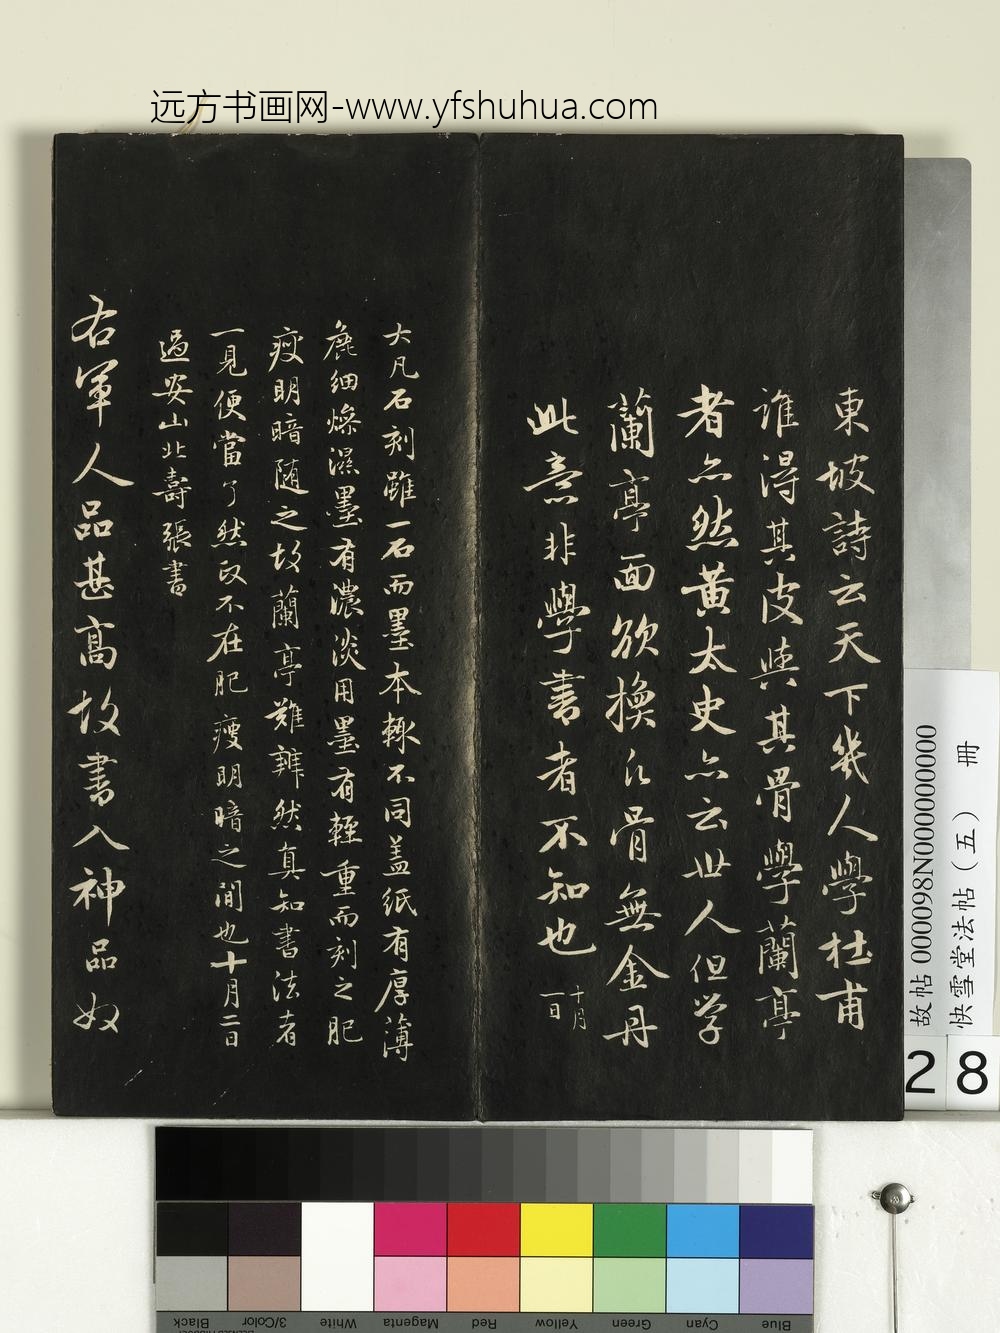 远方书画网-www.yfshuhua.com
東坡詩云天下幾人學杜甫
誰得其皮與其骨學蘭亭
者亦然黃太史亦云世人但学
蘭亭面欲換凡骨無金丹
此意非學書者不知也
十月
一日
大凡石刻雖一石而墨本輒不同蓋紙有厚薄
麁細燥濕墨有濃淡用墨有輕重而刻之肥
瘦明暗随之故蘭亭難辨然真知書法者
一見便當了然政不在肥瘦明暗之間也十月二日
過安山北壽張書
右軍人品甚高故書入神品奴
故帖 000098N000000000
快雪堂法帖（五） 冊
28
Blue
Cyan
Green
Yellow
Red
Magenta
White
3/Color
Black